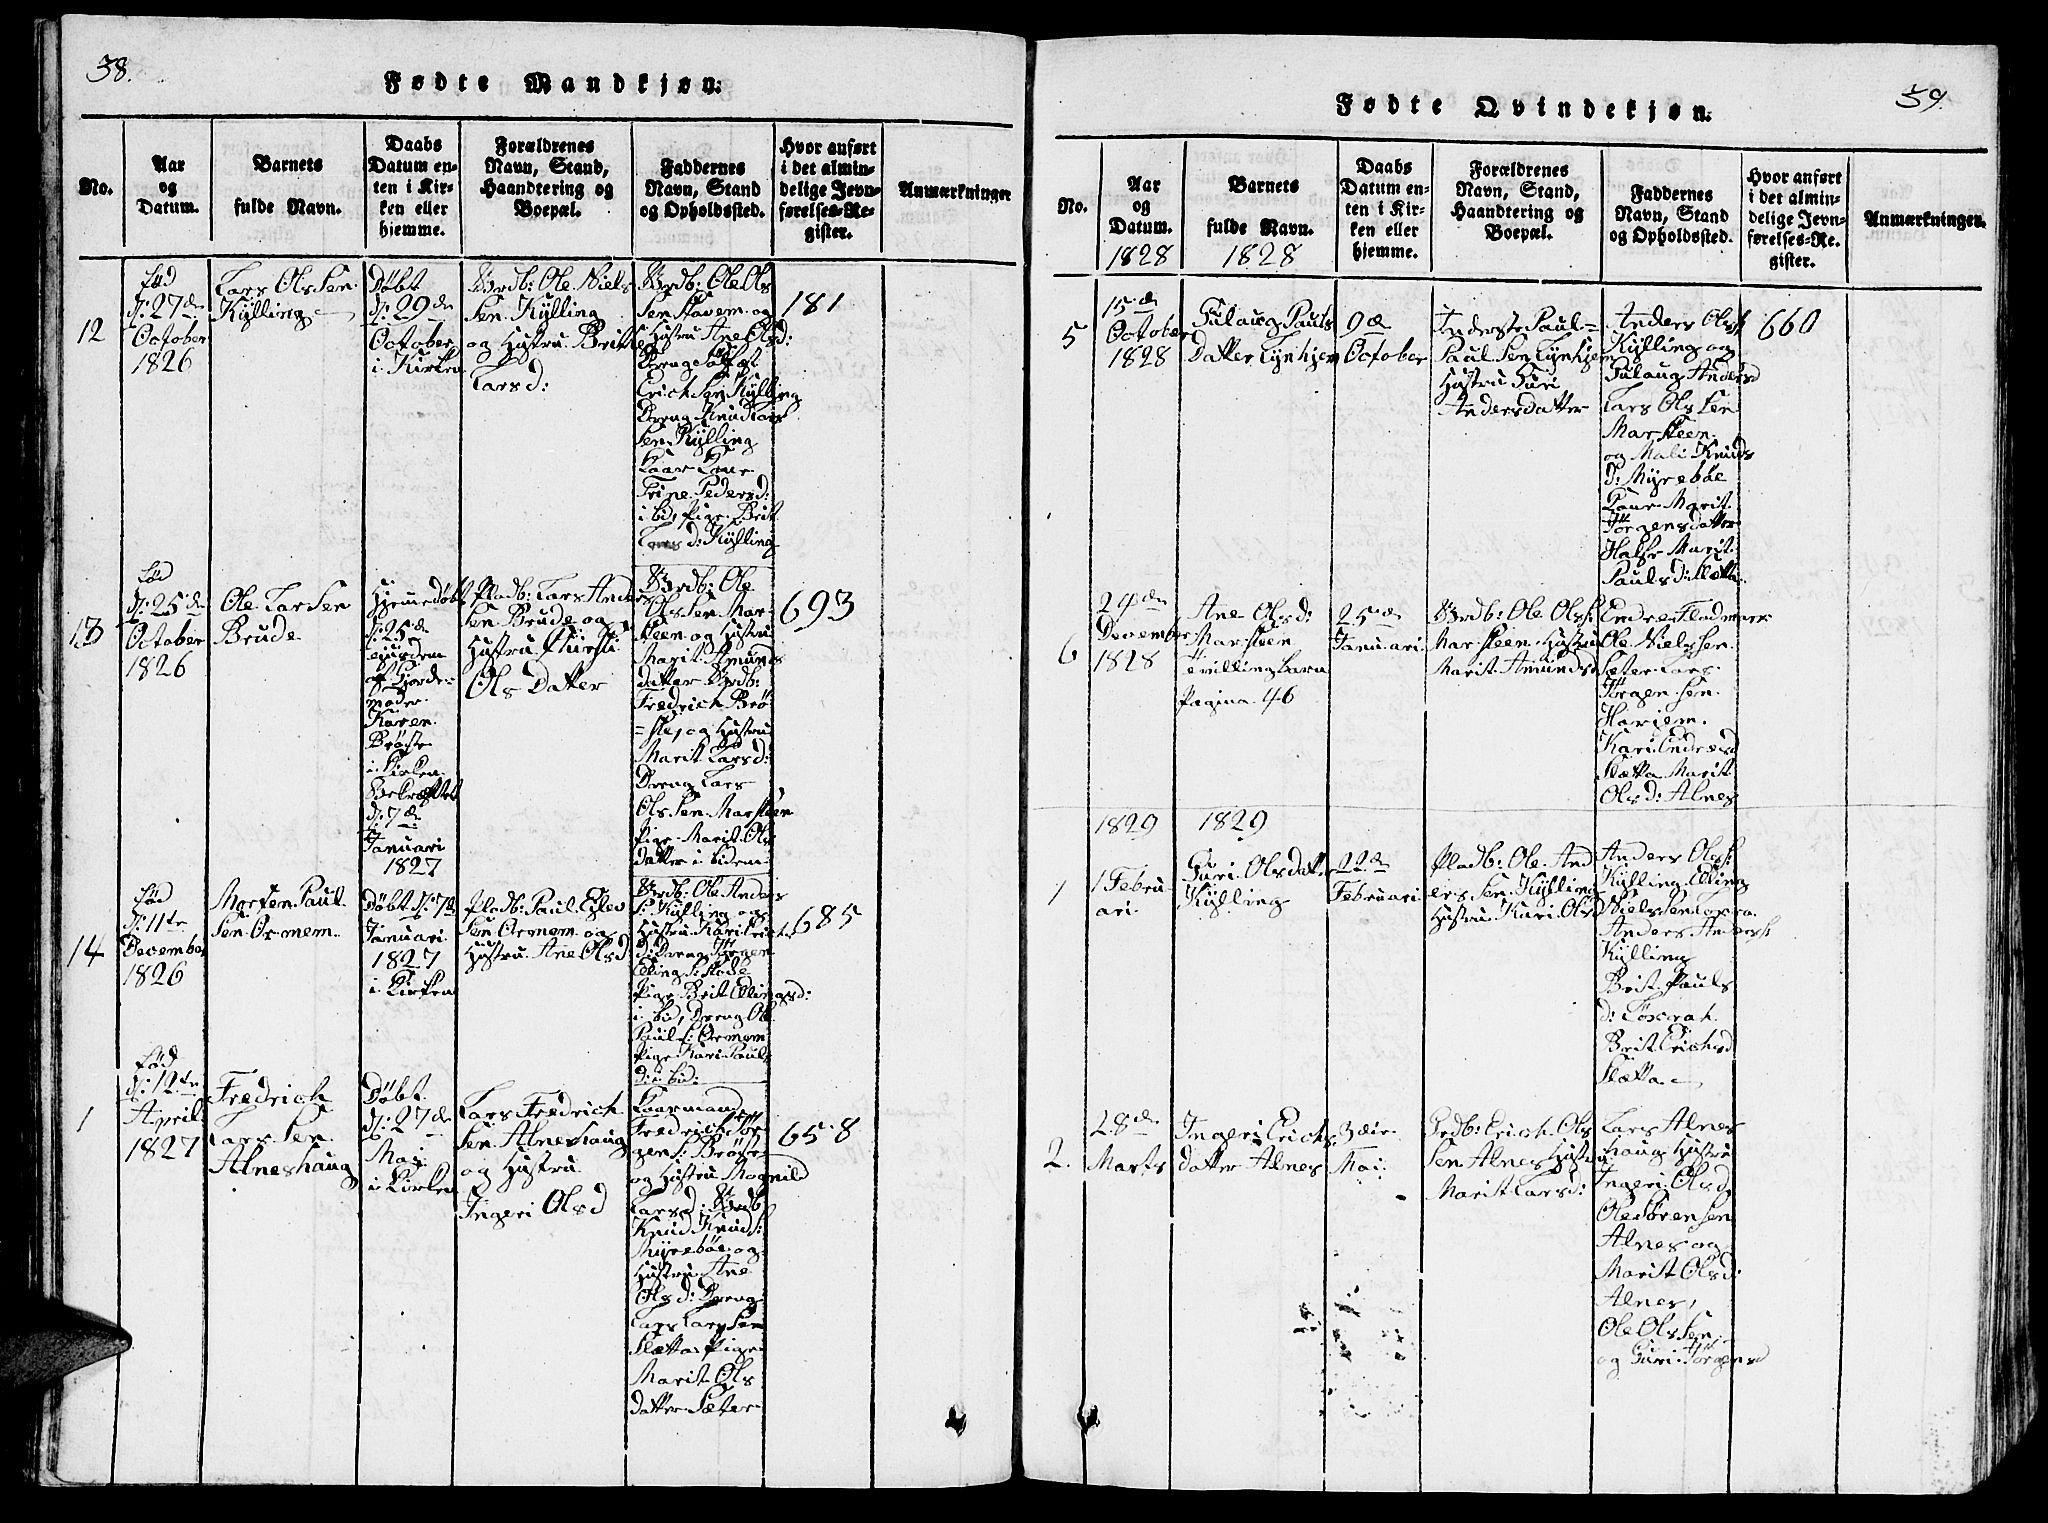 38.
Fødte Mandkjøn.
No.
Aar
og
Datum.
Barnets
fulde Navn.
Daabs
Datum en-
ten i Kir-
ken eller
hjemme.
Forældrenes
Navn, Stand,
Haandtering og
Boepæl.
Faddernes
Navn, Stand
og Opholdssted.
Hvor anført
i det almin-
delige Jevn-
førelses-Re-
gister.
Anmærkninger
12
fød
d: 27de
October
1826
Lars Ols Sen
Kylling
Døbt
d: 29de
October
i Kirken
Brdb: Ole Niels
Sen Kylling
og Hustru Britte
Larsd:
Brdb: Ole Ols
Sen Stavem og
Hustru Ane Olsd:
Erich Sen Kylling
Dreng Knud Lars
Sen Kylling
Trine Pedersd:
ibid, Pige Brit
Larsd: Kylling
181
13
fød
d: 25de
October
1826
Ole Lar Sen
Brude
Hjemmedøbt
d: 25de
ejusdem
af Gjorde-
moder
Karen
Brøste
i Kirken
Bekræftet
d: 7de
Januari
1827
Pladb: Lars Anders
Sen Brude og
Hustru Chirsti
Ols Datter
Brdb: Ole
Ols Sen Mar-
steen og Hustru
Marit Amunds
datter Brdb:
Fredrich Brø
=ste, og Hustru
Marit Larsd:
Dreng Lars
Ols Sen Marsteen
Pige Marit Ols
datter ibidem
693
14
fød
d: 11te
December
1826
Morten Paul
Sen Ormem
Døbt d: 7de
Januari
1827
i Kirken
Pladb: Paul Eslev
Sen Ormem og
Hustru Ane Olsd
Brdb: Ole Anders
S: Kylling og
Hustru Kari Erichs
d: Dreng Jørgen
Elling S: Flade
Pige Brit Ellingsd:
ibid, Dreng Ole
Paul S: Ormem
Pige Kari Pauls
d: ibid:
685
1
fød
d: 12te
April
1827
Fredrich
Lars Sen
Alneshaug
Døbt
d: 27de
Mai
i Kirken
Lars Fredrich
Sen Alneshaug
og Hustru
Ingeri Olsd
Kaarmand
Fredrich Jør
gen S: Brøste
og Hustru Magnild
Larsd: Brdb
Knud Knud S:
Myrebøe og
Hustru Ane
Olsd: Dreng
Lars Lars Sen
Slætta Pige
Marit Ols
datter Sæter
658
59.
Fødte Qvindekjøn.
No.
Aar
og
Datum.
1828
Barnets
fulde Navn.
1828
Daabs
Datum en-
ten i Kir-
ken eller
hjemme.
Forældrenes
Navn, Stand,
Haandtering og
Boepæl.
Faddernes
Navn, Stand
og Opholdssted.
Hvor anført
i det almin-
delige Jevn-
førelses-Re-
gister.
Anmærkninger.
5
15de
October
1828
Gulaug Pauls
Datter Lynhjem
9de
October
Inderste Paul
Paul Sen Lynhjem
Hustru Guri
Andersdatter
Anders Ols S:
Kylling og
Gulaug Andersd
Lars Ols Sen
Marsteen
og Mali Knuds
d: Myrebøe
Marit
Jørgensdatter
Halse Marit
Paulsd: Slætta
660
6
24de
December
1828
Ane Olsd:
Marsteen
tvillingbarn
Pagina 46
25de
Januari
Brdb: Ole Ols S:
Marsteen Hustru
Marit Amundsd
Endre Flademark
Ole Niels Sen
Sæter Lars
Jørgen Sen
Horjem
Kari Endresd
Slætta Marit
Olsd: Alnes
1829
1829
1
1 Febru
ari
Guri Olsdatt
Kylling
22de
Februari
Pladb: Ole And
ers Sen Kylling
Hustru Kari Olsd
Anders Ols S:
Kylling Elling
Niels Sen
Anders Anders S:
Kylling
Brit Pauls
d:
Brit Erichsd
Slætta
2.
28de
Marts
Ingeri Erichs
datter Alnes
3die
Mai
Brdb: Erich Ols
Sen Alnes Hustru
Marit Larsd:
Lars Alnes
haug Hustru
Ingeri Olsd,
Ole Søren Sen
Alnes og
Marit Olsd:
Alnes,
Ole Ols Sen
og Guri Jørgensd